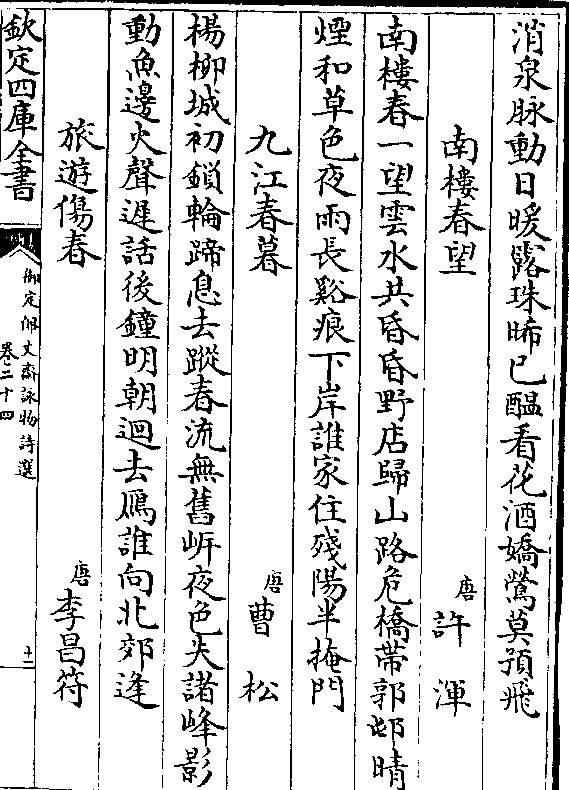 消泉脉動日暖露珠晞已醖看花酒嬌鶯莫預飛
南樓春望　唐許渾
南樓春一望雲水共昏昏野店歸山路危橋帶郭邨晴
煙和草色夜雨長谿痕下岸誰家住殘陽半掩門
九江春暮　唐曹松
楊柳城初鎖輪蹄息去蹤春流無舊岍夜色失諸峰影
動魚邊火聲遲話後鐘明朝迴去鴈誰向北郊逢
旅遊傷春　唐李昌符
欽定四庫全書
御定佩文齋詠物詩選
卷二十四
十二